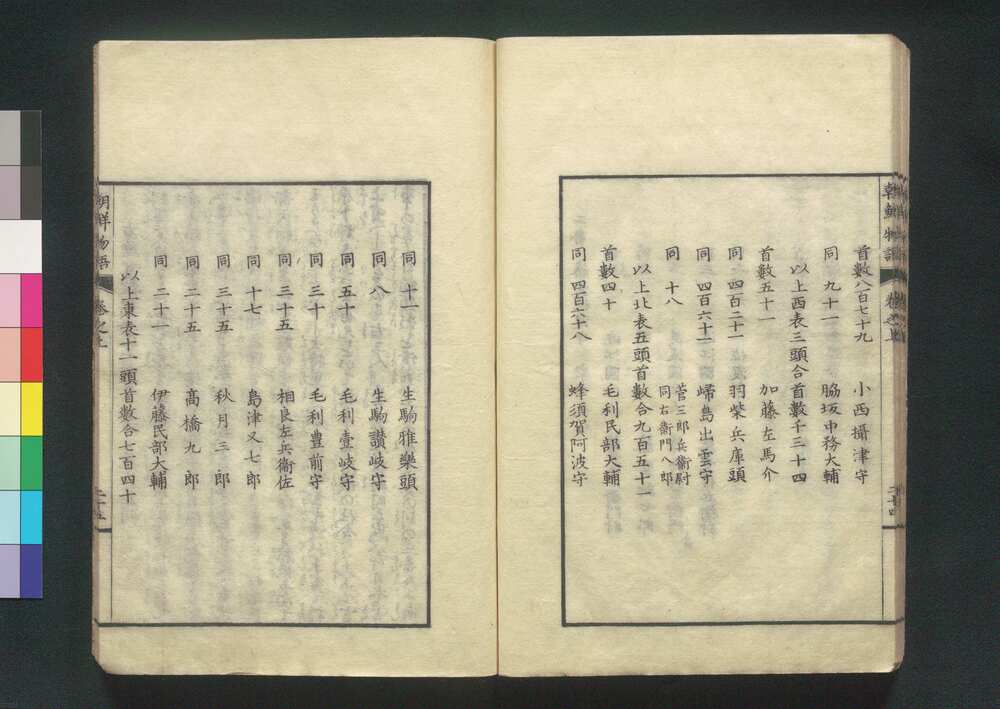 朝鮮物語 卷之上 二十四
首數八百七十九 小西攝津守
同 九十一 脇坂中務大輔
以上西表三頭合首數千三十四
首數五十一 加藤左馬介
同 四百二十一 羽柴兵庫頭
同 四百六十一 歸島出雲守
同 十八 菅三郎兵衞尉
同右衞門八郎
以上北表五頭首數合九百五十一
首數四十 毛利民部大輔
同 四百六十八 蜂須賀阿波守
同 十一 生駒雅樂頭
同 八 生駒讃岐守
同 五十 毛利壹岐守
同 三十 毛利豊前守
同 三十五 相良左兵衞佐
同 十七 島津又七郎
同 三十五 秋月三郎
同 二十五 高橋九郎
同 二十一 伊藤民部大輔
以上東表十一頭首數合七百四十
朝鮮物語 卷之上 二十五